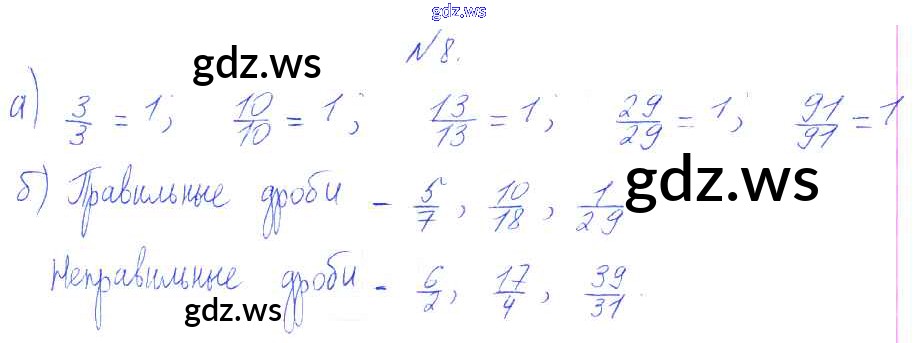 gdz.ws
№ 8.
gdz.ws
а) 3/3 = 1; 10/10 = 1; 13/13 = 1; 29/29 = 1; 91/91 = 1
б) Правильные дроби - 5/7, 10/18, 1/29
gdz.ws
Неправильные дроби - 6/2, 17/4, 39/31.
gdz.ws